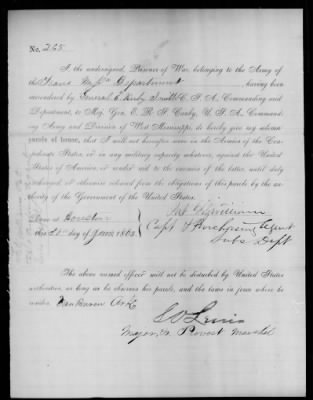 No. 268
I the undersigned, Prisoner of War, belonging to the Army of
the Trans Miss. Department, having been
surrendered by General E. Kirby Smith C. S. A., Commanding said
Department, to Maj. Gen. E. R. S. Canby, U. S. A., Command-
ing Army and Division of West Mississippi, do hereby give my solemn
parole of honor, that I will not hereafter serve in the Armies of the Con-
federate States, or in any military capacity whatever, against the United
States of America, or render aid to the enemies of the latter, until duly
exchanged, or otherwise released from the obligations of this parole by the au-
thority of the Government of the United States.
Fitzwilliam
Done at Houston
Capt & Purchasing Agent
this day of June 1865.
Subs Dept
The above named officer will not be disturbed by United States
authorities, as long as he observes his parole, and the laws in force where he
resides Van Buren Ark
Lewis
Major, & Provost Marshal